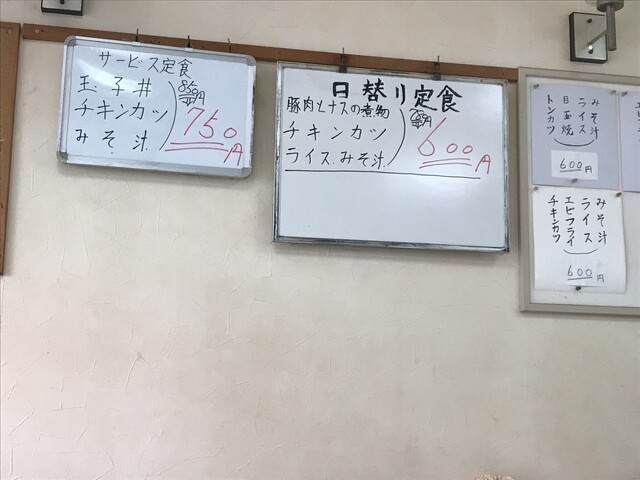 サービス定食
玉子丼
チキンカツ
みそ汁
850円
750円
日替り定食
豚肉とナスの煮物
チキンカツ
ライス みそ汁
600円
トンカツ
目玉焼
ライス
みそ汁
600円
チキンカツ
エビフライ
ライス
みそ汁
600円